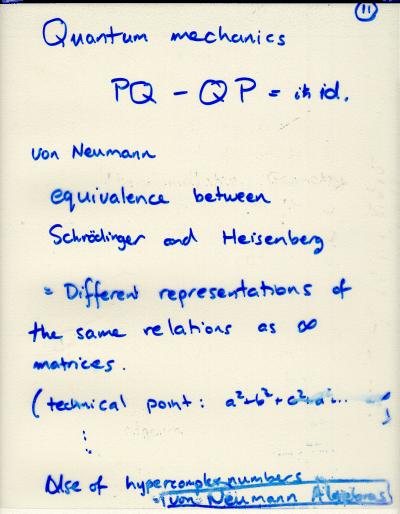 11
Quantum mechanics
PQ - QP = iħ id.
von Neumann
equivalence between
Schrödinger and Heisenberg
= Different representations of
the same relations as ∞
matrices.
(technical point: a²+b²+c²+d²...
:
of hypercomplex numbers
= von Neumann Algebras